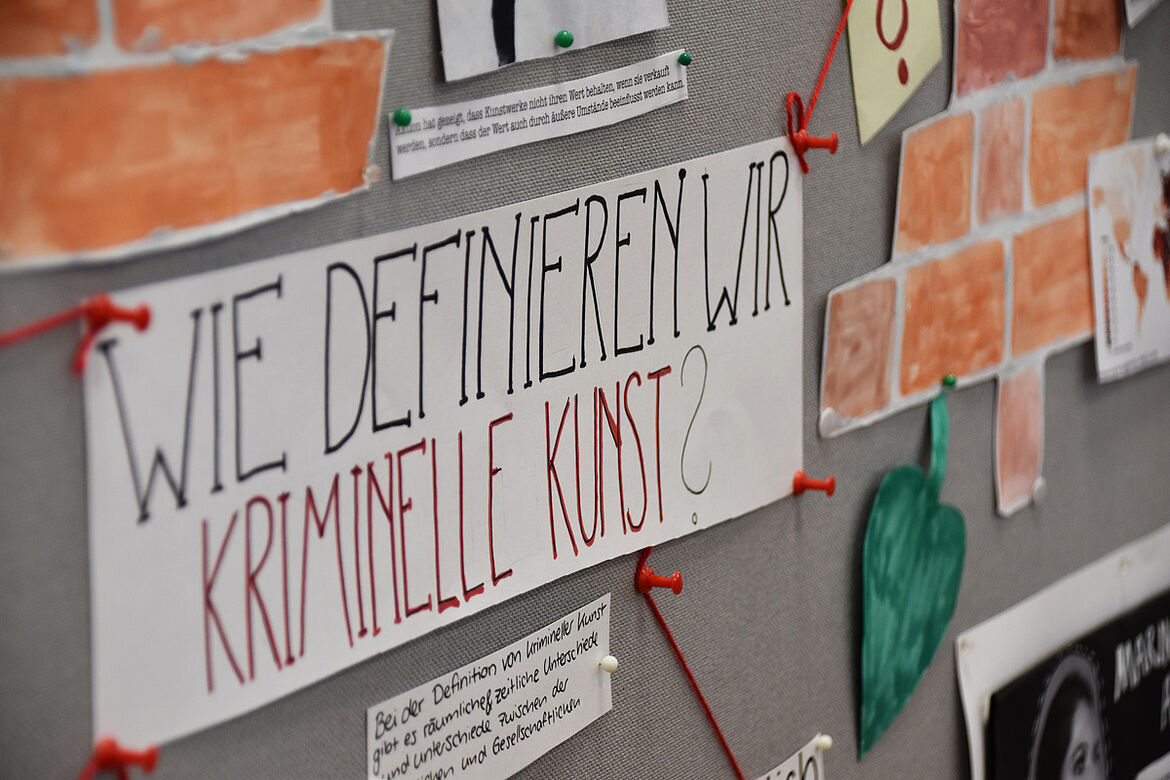 Aktion hat gezeigt, dass Kunstwerke nicht ihren Wert behalten, wenn sie verkauft
werden, sondern dass der Wert auch durch äußere Umstände beeinflusst werden kann.
WIE DEFINIEREN WIR
KRIMINELLE KUNST?
Bei der Definition von krimineller Kunst
gibt es räumliche & zeitliche Unterschiede
und unterschiede zwischen der
lichen und Gesellschaftlichen
lich